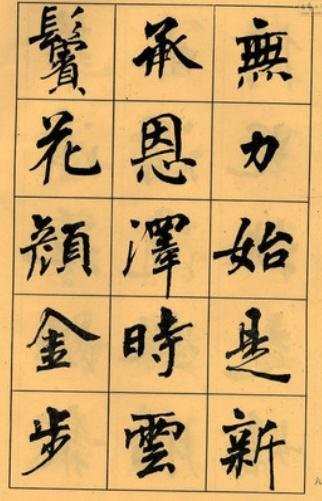 無力始是新
承恩澤時雲
鬢花顏金步